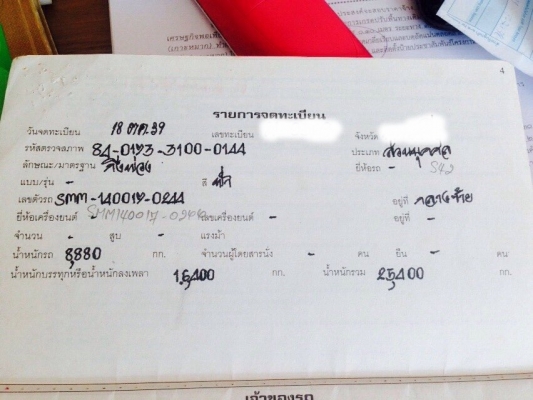 4
รายการจดทะเบียน
วันจดทะเบียน 18 ตค. 39 เลขทะเบียน จังหวัด
รหัสตรวจสภาพ 84-0173-3100-0144 ประเภท ส่วนบุคคล
ลักษณะ/มาตรฐาน กึ่งพ่วง ยี่ห้อรถ -
แบบ/รุ่น - สี
เลขตัวรถ SMM-140017-0244 อยู่ที่ กลางซ้าย
ยี่ห้อเครื่องยนต์ เลขเครื่องยนต์ - อยู่ที่ -
จำนวน - สูบ - แรงม้า
น้ำหนักรถ 8,880 กก. จำนวนผู้โดยสารนั่ง - คน ยืน - คน
น้ำหนักบรรทุกหรือน้ำหนักลงเพลา 16,400 กก. น้ำหนักรวม 25,400 กก.
เจ้าของรถ